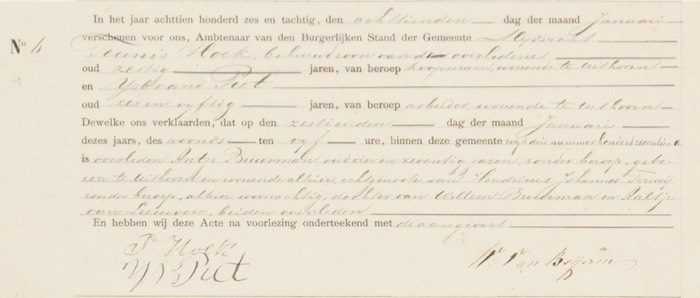 In het jaar achttien honderd zes en tachtig, den achttienden dag der maand Januari
N° 4 verschenen voor ons, Ambtenaar van den Burgerlijken Stand der Gemeente Mijdrecht
Teunis Hoek, behuwdzoon van de overledene,
oud zestig jaren, van beroep koopman, wonende te Uithoorn
en IJsbrand Piet
oud zes en vijftig jaren, van beroep arbeider, wonende te Uithoorn
Dewelke ons verklaarden, dat op den zestienden dag der maand Januari
dezes jaars, des avonds ten vijf ure, binnen deze gemeente wijk drie nummer honderd
is overleden Antje Buurman, oud vier en zeventig jaren, zonder beroep, gebo-
ren te Uithoorn en wonende alhier, echtgenoote van Hendricus Johannes
zonder beroep, alhier woonachtig, dochter van Willem Buurman en Aaltje
van Leeuwen, beiden overleden
En hebben wij deze Acte na voorlezing onderteekend met de aangevers
T Hoek
Y Piet